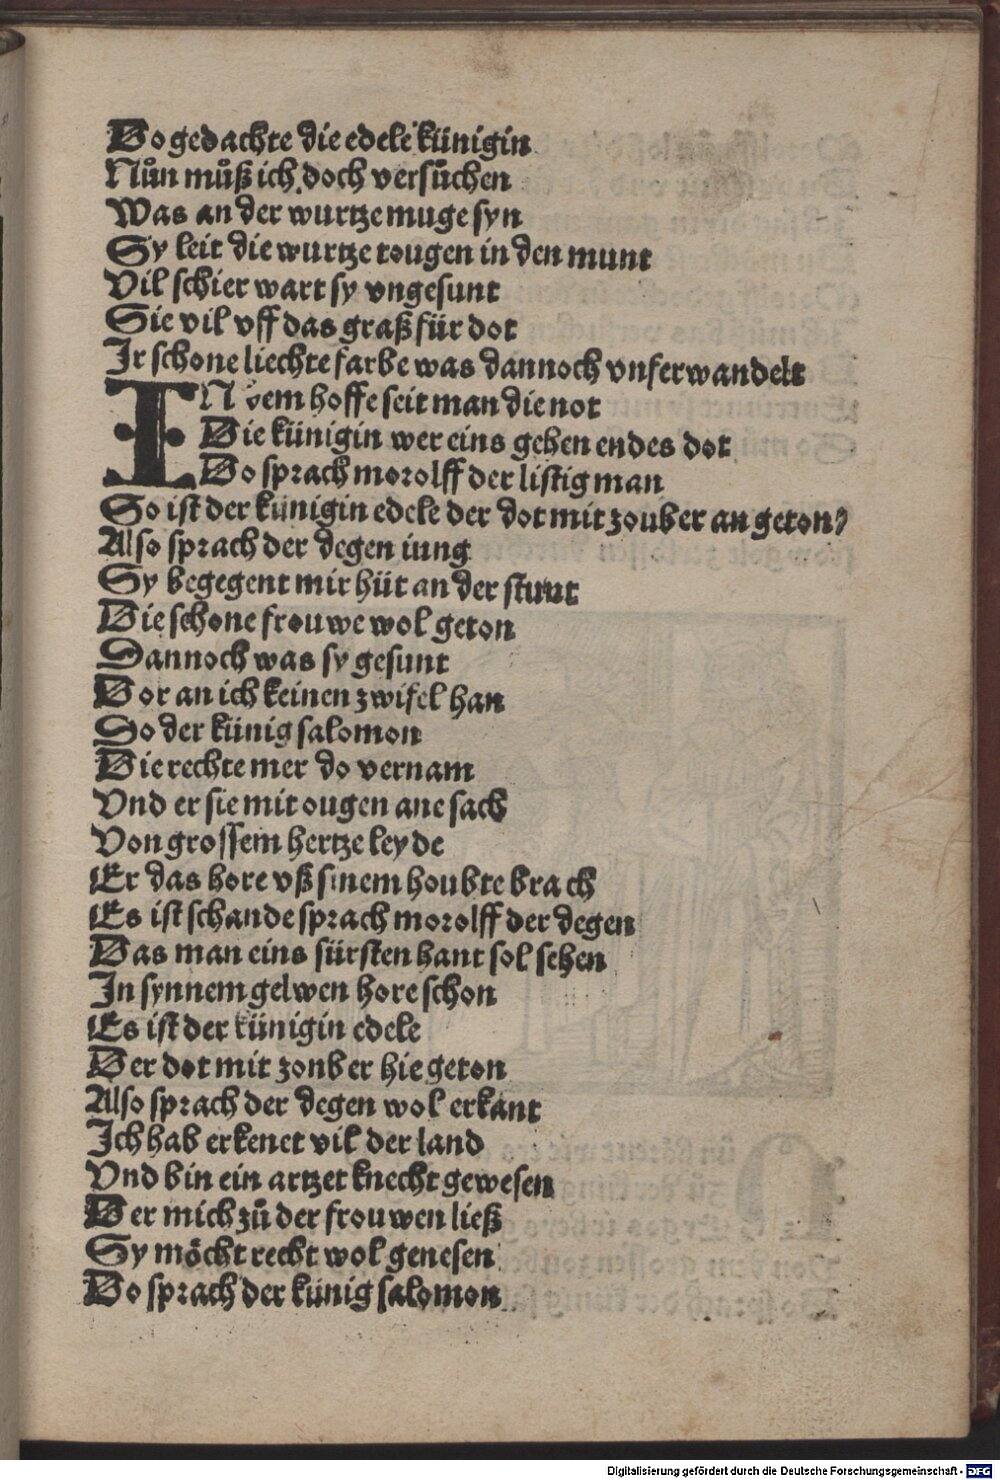 Do gedachte die edele künigin
Nůn můß ich doch versůchen
Was an der wurtze muge syn
Sy leit die wurtze tougen in den munt
Vil schier wart sy vngesunt
Sie vil vff das graß für dot
Ir schone liechte farbe was dannoch vnferwandelt
IN dem hoffe seit man die not
Die künigin wer eins gehen endes dot
Do sprach morolff der listig man
So ist der künigin edele der dot mit zouber an geton?
Also sprach der degen iung
Sy begegent mir hüt an der stunt
Die schone frouwe wol geton
Dannoch was sy gesunt
Dor an ich keinen zwifel han
So der künig salomon
Die rechte mer do vernam
Vnd er sie mit ougen ane sach
Von grossem hertze leyde
Er das hore vß sinem houbte brach
Es ist schande sprach morolff der degen
Das man eins fürsten hant sol sehen
In synnem gelwen hore schon
Es ist der künigin edele
Der dot mit zonber hie geton
Also sprach der degen wol erkant
Ich hab erkenet vil der land
Vnd bin ein artzet knecht gewesen
Der mich zů der frouwen ließ
Sy möcht recht wol genesen
Do sprach der künig salomon
Digitalisierung gefördert durch die Deutsche Forschungsgemeinschaft - DFG